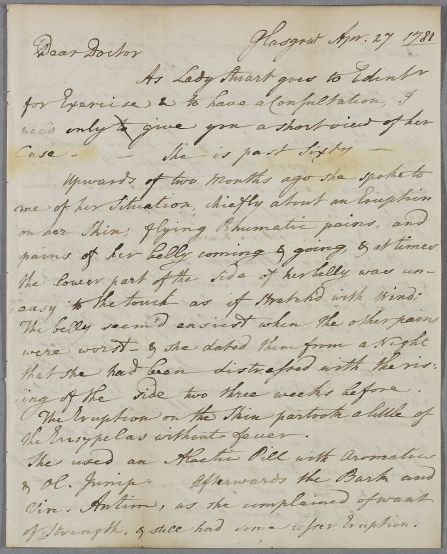 Glasgow Apr. 27 1781
Dear Doctor
As Lady Stuart goes to Edinbr
for Exercise & to have a Consultation, I
need only to give you a short view of her
Case. — — She is past Sixty —
Upwards of two Months ago she spoke to
me of her Situation, chiefly about an Eruption
on her Skin, flying Rhumatic pains, and
pains of her belly coming & going, & at times
the lower part of the side of her belly was un-
easy to the touch as if stretch'd with Wind.
The belly seem'd easiest when the other pains
were worst & she dated them from a Night
that she had been distressed with the
ing of the Side two three weeks before.
The Eruption on the Skin partook a little of
the Erysypelas without fever.
She used an Aloetic Pill with Aromatics
& Ol. Junip. Afterwards the Bark and
Vin. Antim, as she complained of want
of Strength, & still had some Eruption.